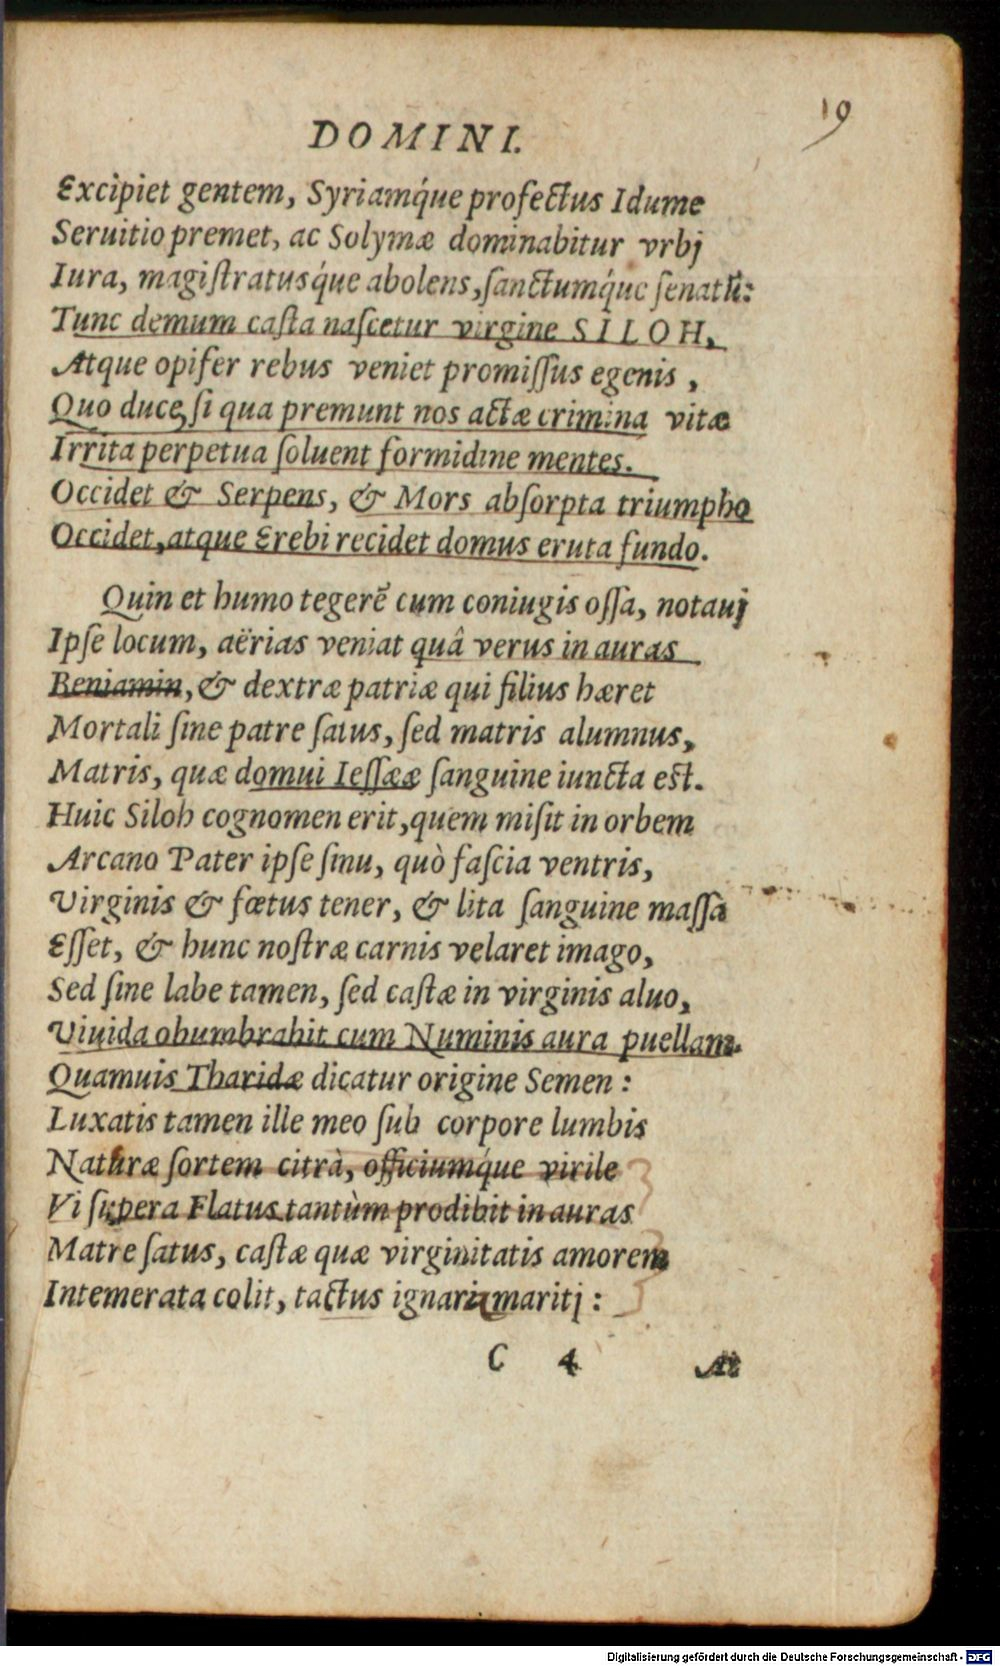 19
DOMINI.
Excipiet gentem, Syriamq́ue profectus Idume
Seruitio premet, ac Solymæ dominabitur vrbj
Iura, magiſtratusq́ue abolens, ſanctumq́ue ſenatū:
Tunc demum caſta naſcetur virgine SILOH,
Atque opifer rebus veniet promiſſus egenis,
Quo duce, ſi qua premunt nos actæ crimina vitæ
Irrita perpetua ſoluent formidine mentes.
Occidet & Serpens, & Mors abſorpta triumpho
Occidet, atque Erebi recidet domus eruta fundo.
Quin et humo tegerē cum coniugis oſſa, notauj
Ipſe locum, aërias veniat quâ verus in auras
Beniamin, & dextræ patriæ qui filius hæret
Mortali ſine patre ſatus, ſed matris alumnus,
Matris, quæ domui Ieſſææ ſanguine iuncta eſt.
Huic Siloh cognomen erit, quem miſit in orbem
Arcano Pater ipſe ſinu, quò faſcia ventris,
Virginis & fœtus tener, & lita ſanguine maſſa
Eſſet, & hunc noſtræ carnis velaret imago,
Sed ſine labe tamen, ſed caſtæ in virginis aluo,
Viuida obumbrabit cum Numinis aura puellam.
Quamuis Tharidæ dicatur origine Semen:
Luxatis tamen ille meo ſub corpore lumbis
Naturæ ſortem citrà, officiumq́ue virile
Vi ſupera Flatus tantùm prodibit in auras
Matre ſatus, caſtæ quæ virginitatis amorem
Intemerata colit, tactus ignara maritj:
C 4 At
Digitalisierung gefördert durch die Deutsche Forschungsgemeinschaft - DFG